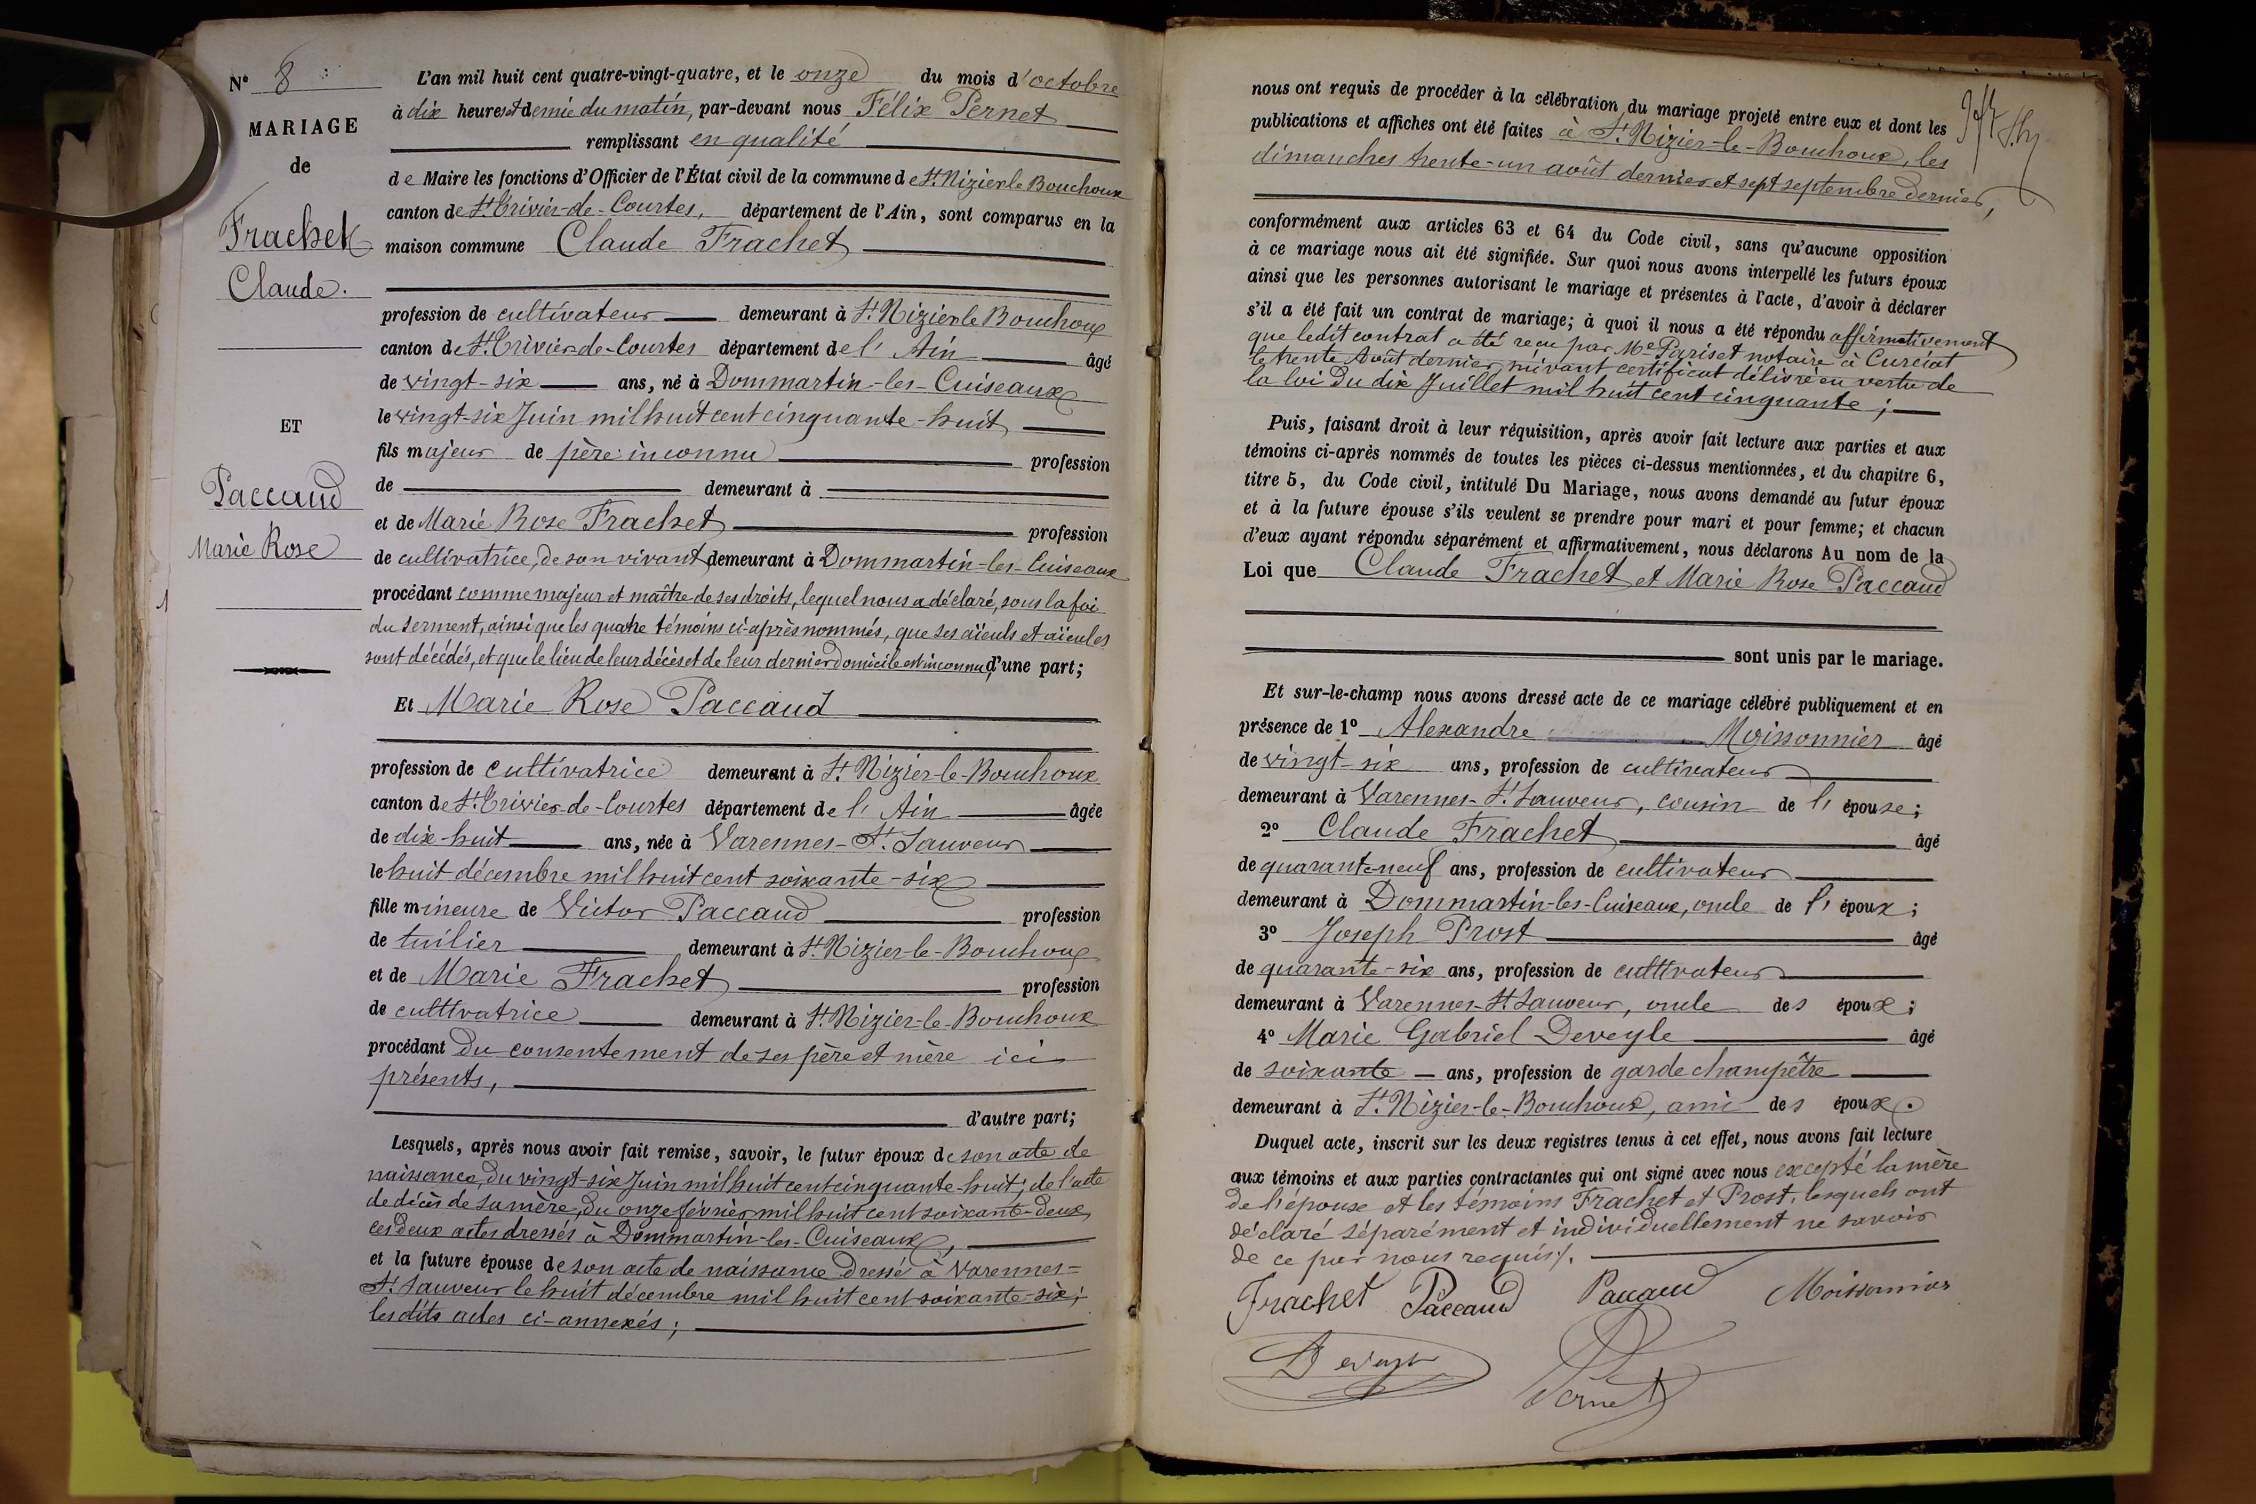 N° 8
MARIAGE
de
Frachet
Claude.
ET
Paccaud
Marie Rose
1
L'an mil huit cent quatre-vingt-quatre, et le onze du mois d'octobre
à dix heures et demie du matin, par-devant nous Félix Pernet
remplissant en qualité
de Maire les fonctions d'Officier de l'État civil de la commune de St Nizier le Bouchoux
canton de St Trivier-de-Courtes, département de l'Ain, sont comparus en la
maison commune Claude Frachet
profession de cultivateur demeurant à St Nizier le Bouchoux
canton de St Trivier-de-Courtes département de l'Ain âgé
de vingt-six ans, né à Dommartin-les-Cuiseaux
le vingt-six Juin mil huit cent cinquante-huit
fils majeur de père inconnu profession
de demeurant à
et de Marie Rose Frachet profession
de cultivatrice, de son vivant demeurant à Dommartin-les-Cuiseaux
procédant comme majeur et maître de ses droits, lequel nous a déclaré, sous la foi
du serment, ainsi que les quatre témoins ci-après nommés, que ses aïeuls et aïeules
sont décédés, et que le lieu de leur décès et de leur dernier domicile est inconnu, d'une part;
Et Marie Rose Paccaud
profession de cultivatrice demeurant à St Nizier-le-Bouchoux
canton de St Trivier-de-Courtes département de l'Ain âgée
de dix-huit ans, née à Varennes-St Sauveur
le huit décembre mil huit cent soixante-six
fille mineure de Victor Paccaud profession
de tuilier demeurant à St Nizier-le-Bouchoux
et de Marie Frachet profession
de cultivatrice demeurant à St Nizier-le-Bouchoux
procédant du consentement de ses père et mère ici
présents,
d'autre part;
Lesquels, après nous avoir fait remise, savoir, le futur époux de son acte de
naissance, du vingt-six Juin mil huit cent cinquante-huit; de l'acte
de décès de sa mère, du onze février mil huit cent soixante-deux,
ces deux actes dressés à Dommartin-les-Cuiseaux,
et la future épouse de son acte de naissance dressé à Varennes-
St Sauveur le huit décembre mil huit cent soixante-six;
les dits actes ci-annexés;
nous ont requis de procéder à la célébration du mariage projeté entre eux et dont les
publications et affiches ont été faites à St Nizier-le-Bouchoux, les
dimanches trente-un août dernier et sept septembre dernier,
conformément aux articles 63 et 64 du Code civil, sans qu'aucune opposition
à ce mariage nous ait été signifiée. Sur quoi nous avons interpellé les futurs époux
ainsi que les personnes autorisant le mariage et présentes à l'acte, d'avoir à déclarer
s'il a été fait un contrat de mariage; à quoi il nous a été répondu affirmativement
que ledit contrat a été reçu par Me Pariset notaire à Curciat
le trente Août dernier, suivant certificat délivré en vertu de
la loi du dix Juillet mil huit cent cinquante;
Puis, faisant droit à leur réquisition, après avoir fait lecture aux parties et aux
témoins ci-après nommés de toutes les pièces ci-dessus mentionnées, et du chapitre 6,
titre 5, du Code civil, intitulé Du Mariage, nous avons demandé au futur époux
et à la future épouse s'ils veulent se prendre pour mari et pour femme; et chacun
d'eux ayant répondu séparément et affirmativement, nous déclarons Au nom de la
Loi que Claude Frachet et Marie Rose Paccaud
sont unis par le mariage.
Et sur-le-champ nous avons dressé acte de ce mariage célébré publiquement et en
présence de 1° Alexandre Moissonnier âgé
de vingt-six ans, profession de cultivateur
demeurant à Varennes-St Sauveur, cousin de l'épouse;
2° Claude Frachet âgé
de quarante-neuf ans, profession de cultivateur
demeurant à Dommartin-les-Cuiseaux, oncle de l'époux;
3° Joseph Prost âgé
de quarante-six ans, profession de cultivateur
demeurant à Varennes-St Sauveur, oncle des époux;
4° Marie Gabriel Deveyle âgé
de soixante ans, profession de garde champêtre
demeurant à St Nizier-le-Bouchoux, ami des époux.
Duquel acte, inscrit sur les deux registres tenus à cet effet, nous avons fait lecture
aux témoins et aux parties contractantes qui ont signé avec nous excepté la mère
de l'épouse et les témoins Frachet et Prost, lesquels ont
déclaré séparément et individuellement ne savoir
de ce par nous requis.
Frachet Paccaud Paccaud Moissonnier
Deveyle
Pernet